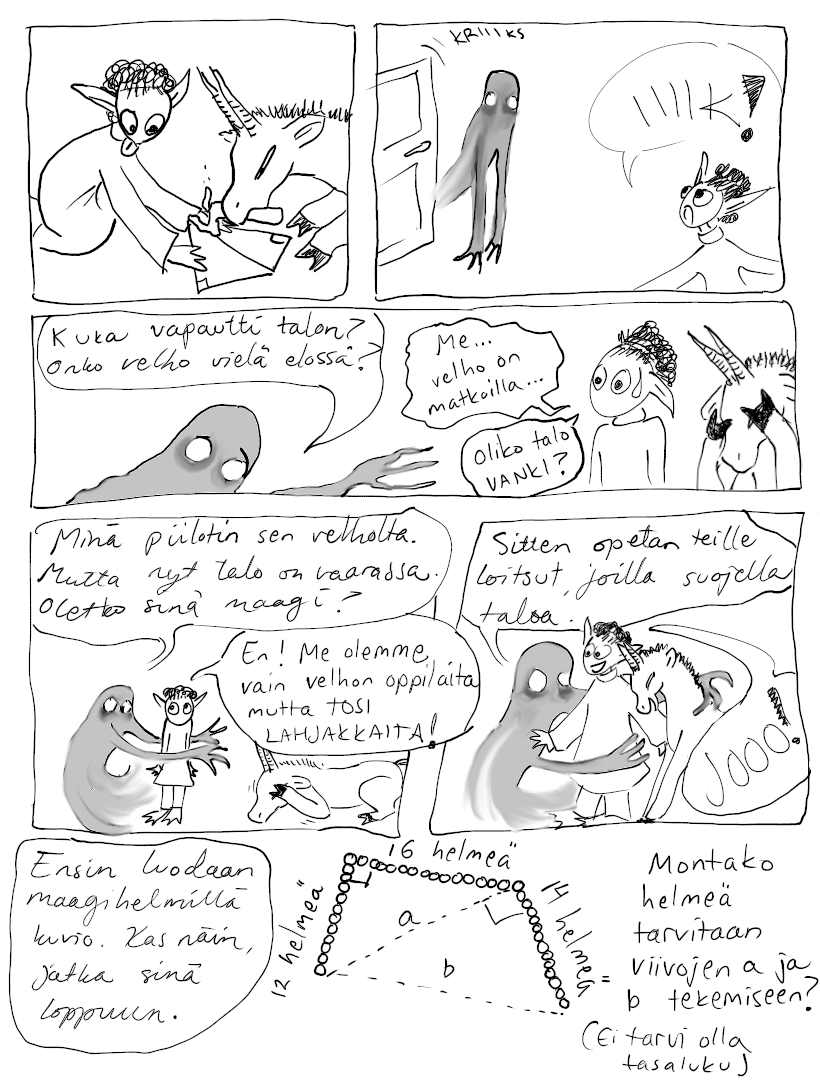 KRIIIKS
IIIIK!
Kuka vapautti talon?
Onko velho vielä elossa?
Me...
velho on
matkoilla...
Oliko talo
VANKI?
Minä piilotin sen velholta.
Mutta nyt talo on vaarassa.
Oletko sinä maagi?
En! Me olemme
vain velhon oppilaita
mutta TOSI
LAHJAKKAITA!
Sitten opetan teille
loitsut, joilla suojella
taloa.
JOOO!
Ensin luodaan
maagihelmillä
kuvio. Kas näin,
jatka sinä
loppuun.
16 helmeä
12 helmeä
14 helmeä
a
b
=
Montako
helmeä
tarvitaan
viivojen a ja
b tekemiseen?
(Ei tarvi olla
tasaluku)